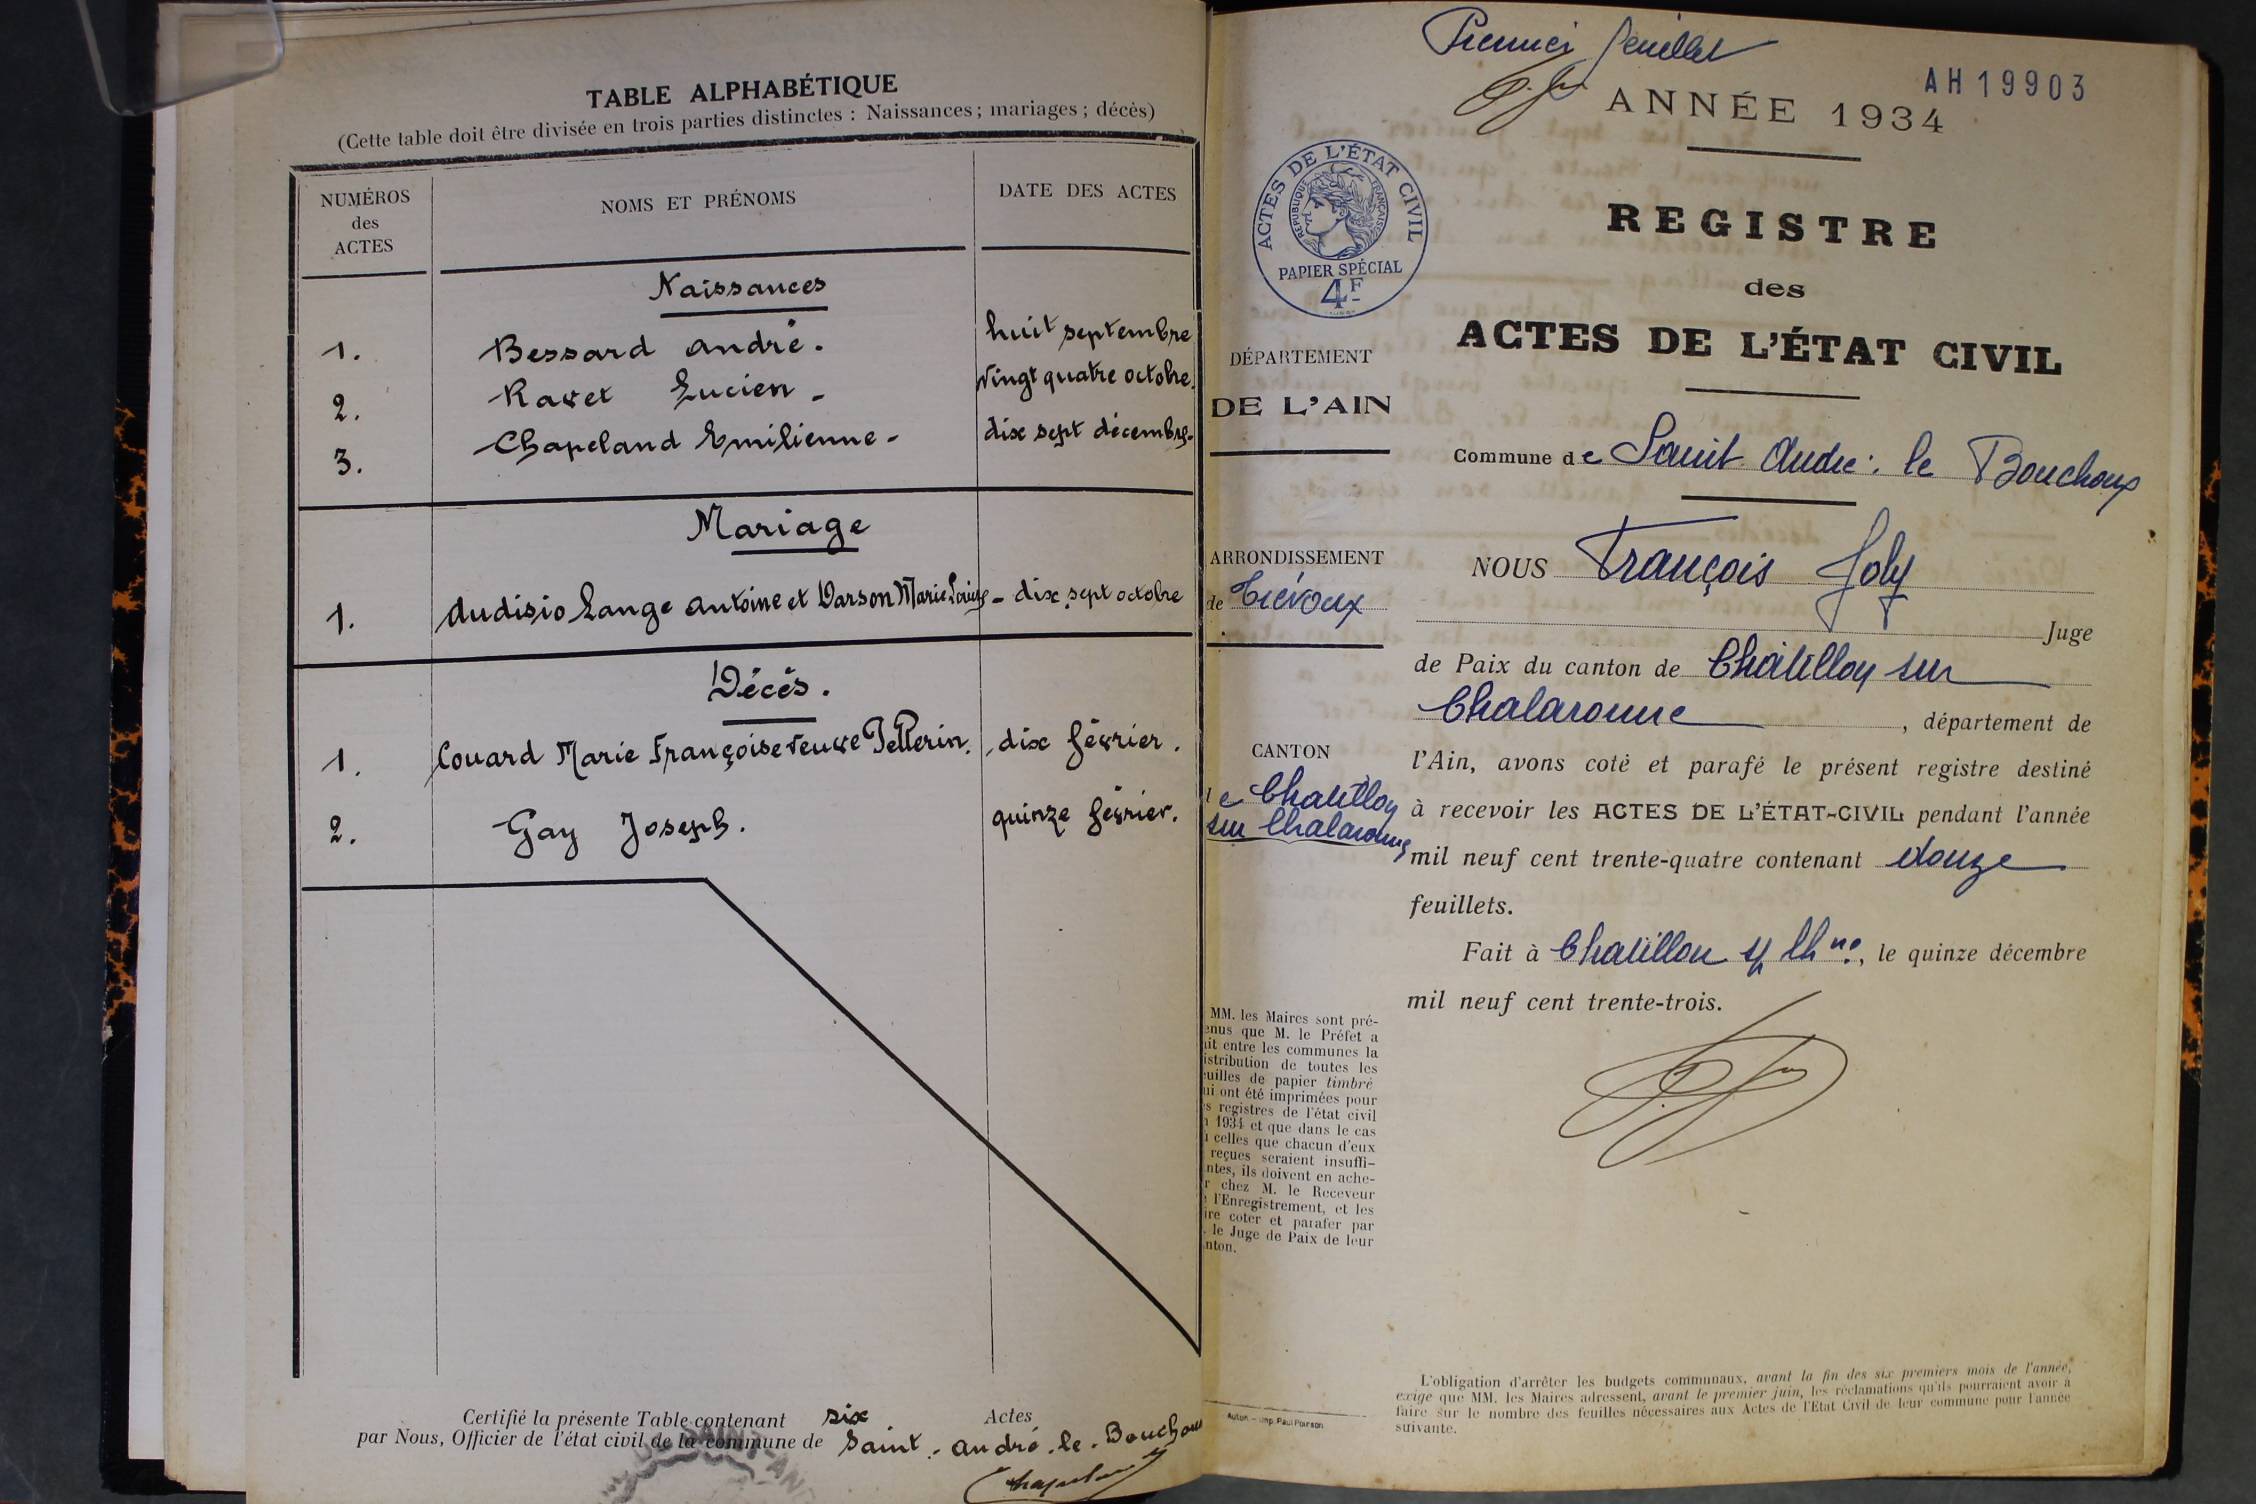 TABLE ALPHABÉTIQUE
(Cette table doit être divisée en trois parties distinctes : Naissances ; mariages ; décès)
NUMÉROS
des
ACTES
NOMS ET PRÉNOMS
DATE DES ACTES
Naissances
1. Bessard André. huit septembre
2. Ravet Lucien - vingt quatre octobre.
3. Chapeland Emilienne - dix sept décembre.
Mariage
1. Audisio Lange Antoine et Varson Marie Louise - dix sept octobre
Décés.
1. Couard Marie Françoise veuve Pellerin. dix février.
2. Gay Joseph. quinze février.
Certifié la présente Table contenant six Actes
par Nous, Officier de l'état civil de la commune de Saint-André-le-Bouchoux
Chapeland
DE SAINT-AND
Premier feuillet
AH19903
ANNÉE 1934
ACTES DE L'ÉTAT CIVIL
RÉPUBLIQUE FRANÇAISE
PAPIER SPÉCIAL
4F
REGISTRE
des
ACTES DE L'ÉTAT CIVIL
DÉPARTEMENT
DE L'AIN
Commune de Saint André le Bouchoux
ARRONDISSEMENT
de Trévoux
CANTON
e Chatillon
sur Chalaronne
NOUS François Joly
Juge
de Paix du canton de Châtillon sur
Chalaronne, département de
l'Ain, avons coté et parafé le présent registre destiné
à recevoir les ACTES DE L'ÉTAT-CIVIL pendant l'année
mil neuf cent trente-quatre contenant douze
feuillets.
Fait à Chatillon s/ Chne., le quinze décembre
mil neuf cent trente-trois.
MM. les Maires sont pré-
enus que M. le Préfet a
ait entre les communes la
istribution de toutes les
euilles de papier timbré
ui ont été imprimées pour
es registres de l'état civil
n 1934 et que dans le cas
ù celles que chacun d'eux
reçues seraient insuffi-
ntes, ils doivent en ache-
r chez M. le Receveur
e l'Enregistrement, et les
ire coter et parafer par
. le Juge de Paix de leur
nton.
L'obligation d'arrêter les budgets communaux, avant la fin des six premiers mois de l'année,
exige que MM. les Maires adressent, avant le premier juin, les réclamations qu'ils pourraient avoir à
faire sur le nombre des feuilles nécessaires aux Actes de l'Etat Civil de leur commune pour l'année
suivante.
Autun. — Imp. Paul Poirson